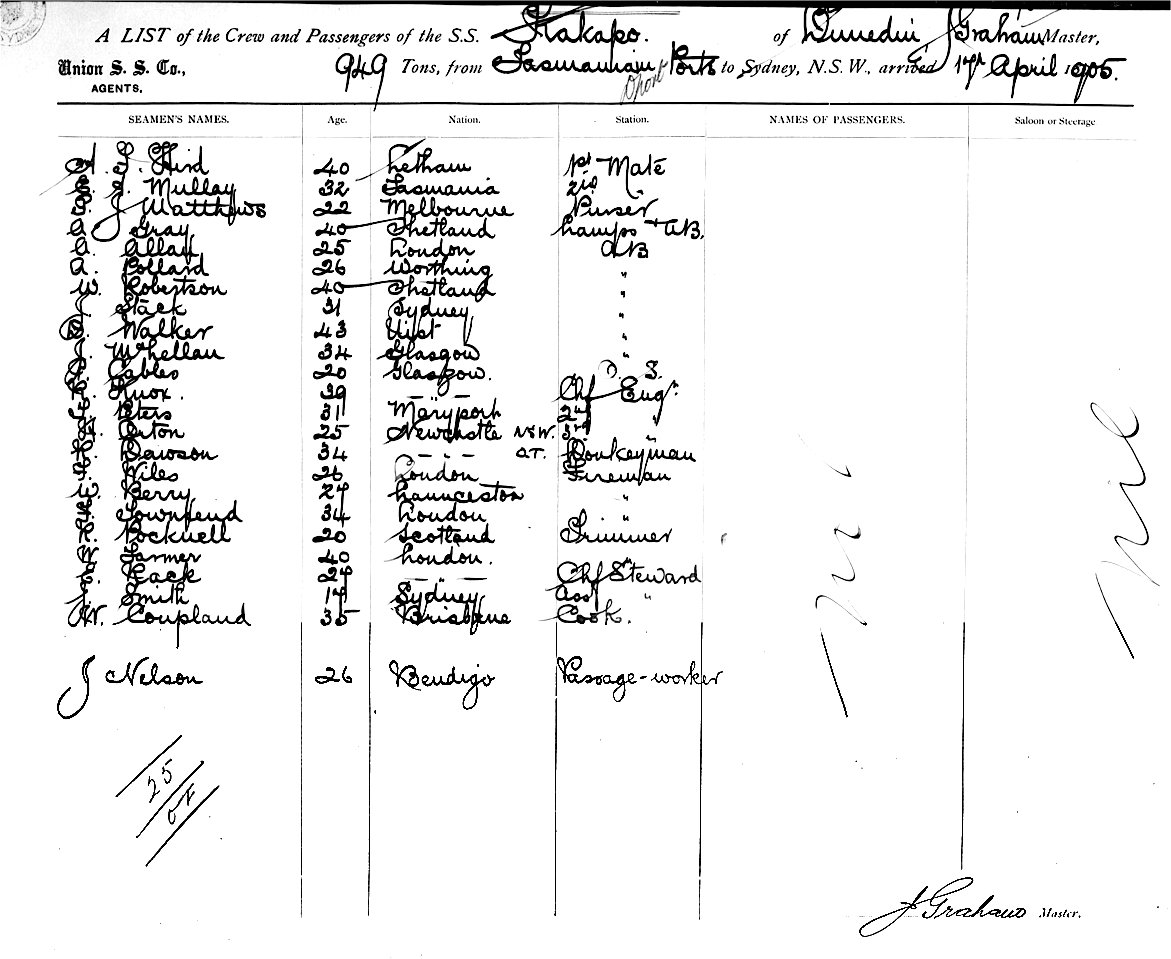 A LIST of the Crew and Passengers of the S.S. Kakapo. of Dunedin, J Graham Master,
Union S. S. Co., 949 Tons, from Tasmanian Ports to Sydney, N.S.W., arrived 17th April 1905.
AGENTS. Dport
SEAMEN'S NAMES. Age. Nation. Station. NAMES OF PASSENGERS. Saloon or Steerage
A. Hird 40 Letham 1st Mate
Mullay 32 Tasmania 2nd
J Matthews 22 Melbourne Purser
A. Gray 40 Shetland Lamps + AB.
A. Allan 25 London AB
A. Pollard 26 Worthing "
W. Robertson 40 Shetland "
J Stack 31 Sydney "
D. Walker 43 Uist "
J. McLellan 34 Glasgow "
Cables 20 Glasgow. O. S.
Knox. 39 — " — Chf Engr.
Peters 31 Maryport 2nd "
Orton 25 Newcastle NSW. 3rd "
Dawson 34 — — — Donkeyman
Niles 26 London Fireman
W. Berry 27 Launceston "
Townsend 34 London "
Pocknell 20 Scotland Trimmer
W. Farmer 40 London. "
Rack 27 — " — Chf Steward
J. Smith 17 Sydney Asst "
W. Coupland 35 Brisbane Cook.
J Nelson 26 Bendigo Passage-worker
Nil Nil
25
J Graham Master.